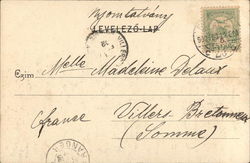 Nyomtatvány
LEVELEZŐ-LAP.
Czim: Melle Madeleine Delaux
Villers Bretonneux
france (Somme)